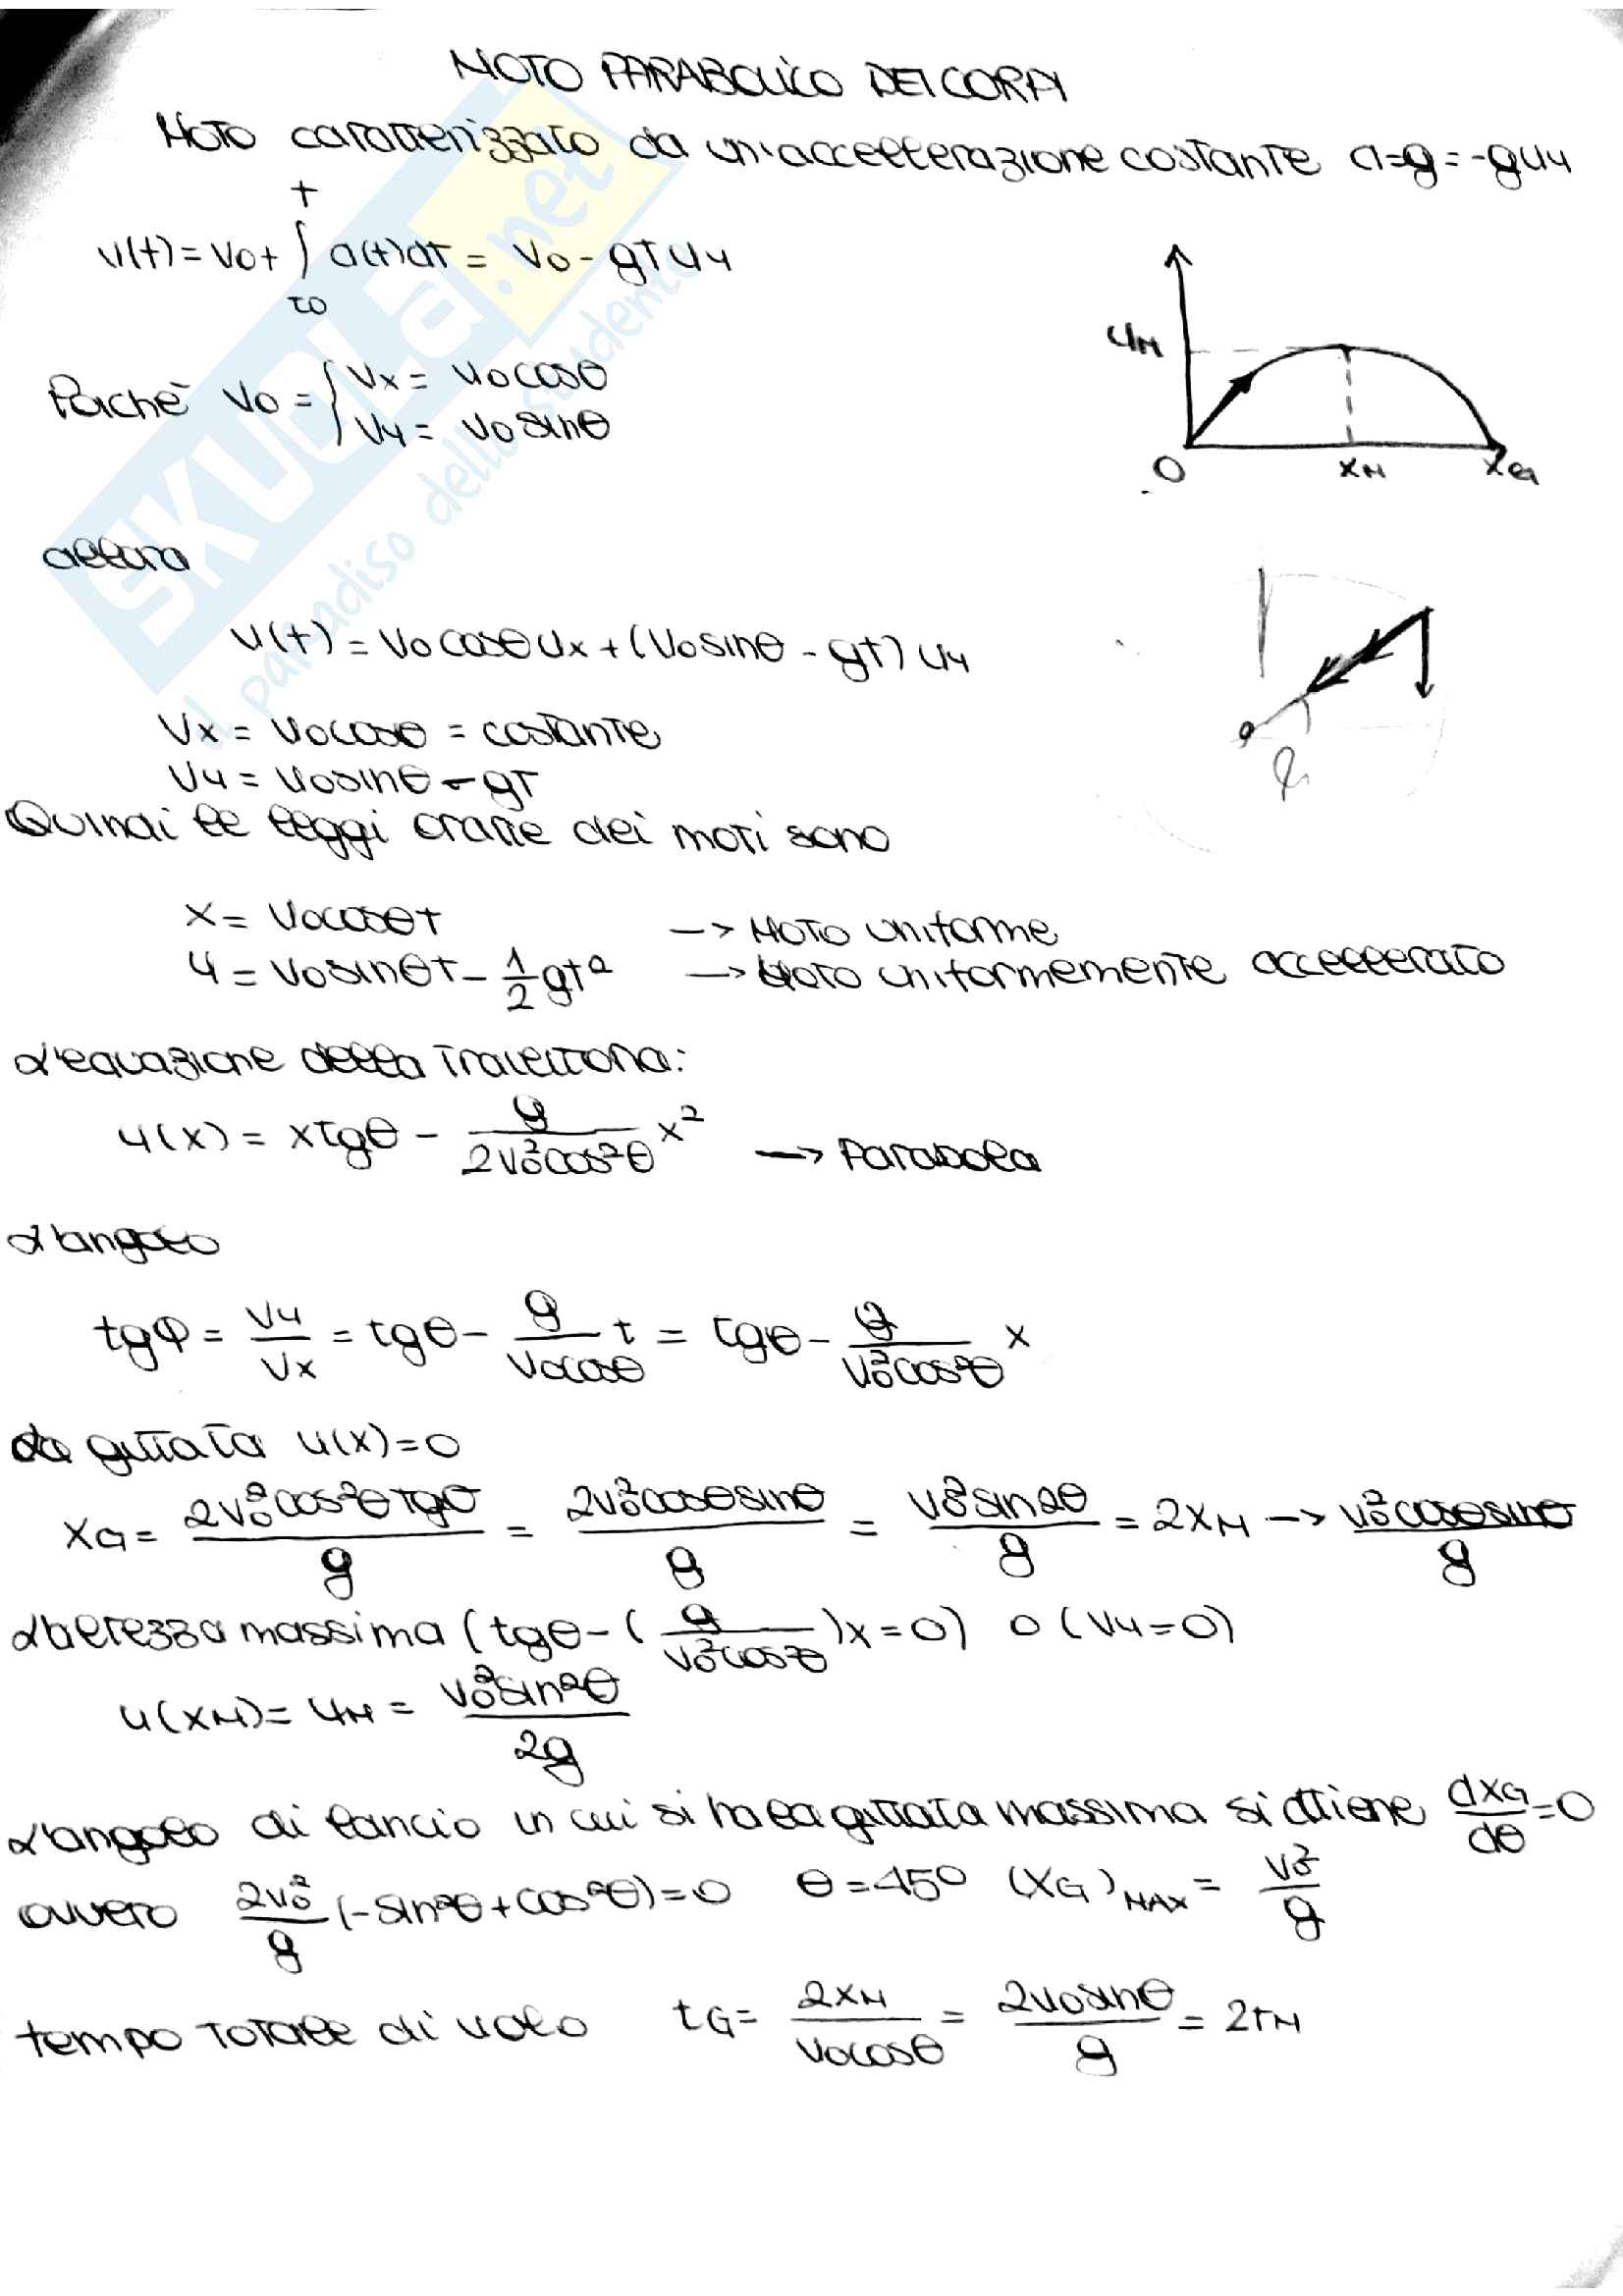 MOTO PARABOLICO DEI CORPI
Moto caratterizzato da un'accellerazione costante a=g=-guy
v(t)=v0+∫ a(t)dt = v0-gtuy
t
t0
yM
O xM xG
Poichè v0 = { vx = v0cosθ
vy = v0sinθ
allora
v(t)=v0cosθux+(v0sinθ-gt)uy
vx = v0cosθ = costante
vy = v0sinθ-gt
Quindi le leggi orarie dei moti sono
x = v0cosθt -> Moto uniforme
y = v0sinθt - 1/2 gt² -> Moto uniformemente accellerato
L'equazione della traiettoria:
y(x) = xtgθ - g/(2v0²cos²θ) x² -> Parabola
L'angolo
tgφ = vy/vx = tgθ - g/(v0cosθ) t = tgθ - g/(v0²cos²θ) x
La gittata y(x)=0
xG = 2v0²cos²θtgθ/g = 2v0²cosθsinθ/g = v0²sin2θ/g = 2xM -> v0²cosθsinθ/g
L'altezza massima (tgθ-(g/(v0²cos²θ))x=0) o (vy=0)
y(xM)=yM = v0²sin²θ/2g
L'angolo di lancio in cui si ha la gittata massima si ottiene dxG/dθ=0
ovvero 2v0²/g (-sin²θ+cos²θ)=0 θ=45° (xG)MAX = v0²/g
tempo totale di volo tG = 2xM/(v0cosθ) = 2v0sinθ/g = 2tM
SKUOLA.net
il paradiso dello studente